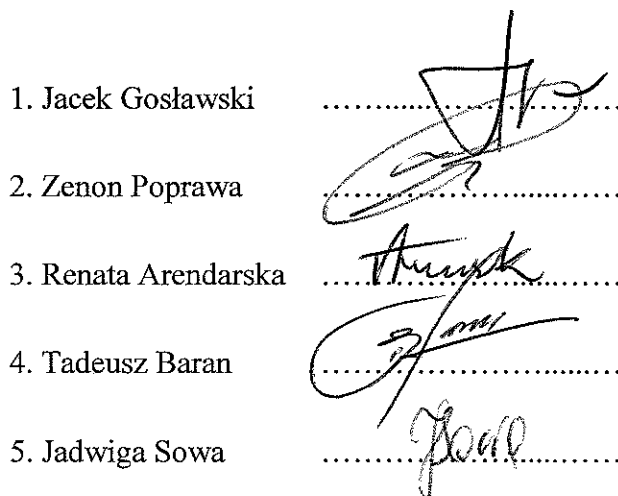 1. Jacek Gosławski ..............................
2. Zenon Poprawa ..............................
3. Renata Arendarska ..............................
4. Tadeusz Baran ..............................
5. Jadwiga Sowa ..............................